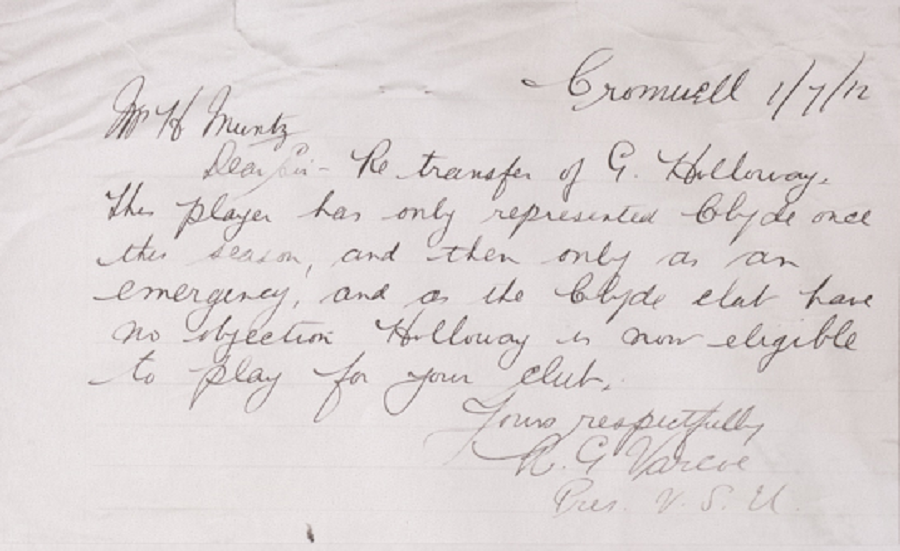 Cromwell 1/7/12
Mr H Muntz
Dear Sir - Re transfer of G. Holloway.
This player has only represented Clyde once
this season, and then only as an
emergency, and as the Clyde club have
no objection Holloway is now eligible
to play for your club.
Yours respectfully
R. G Varcoe
Pres. V. S. U.